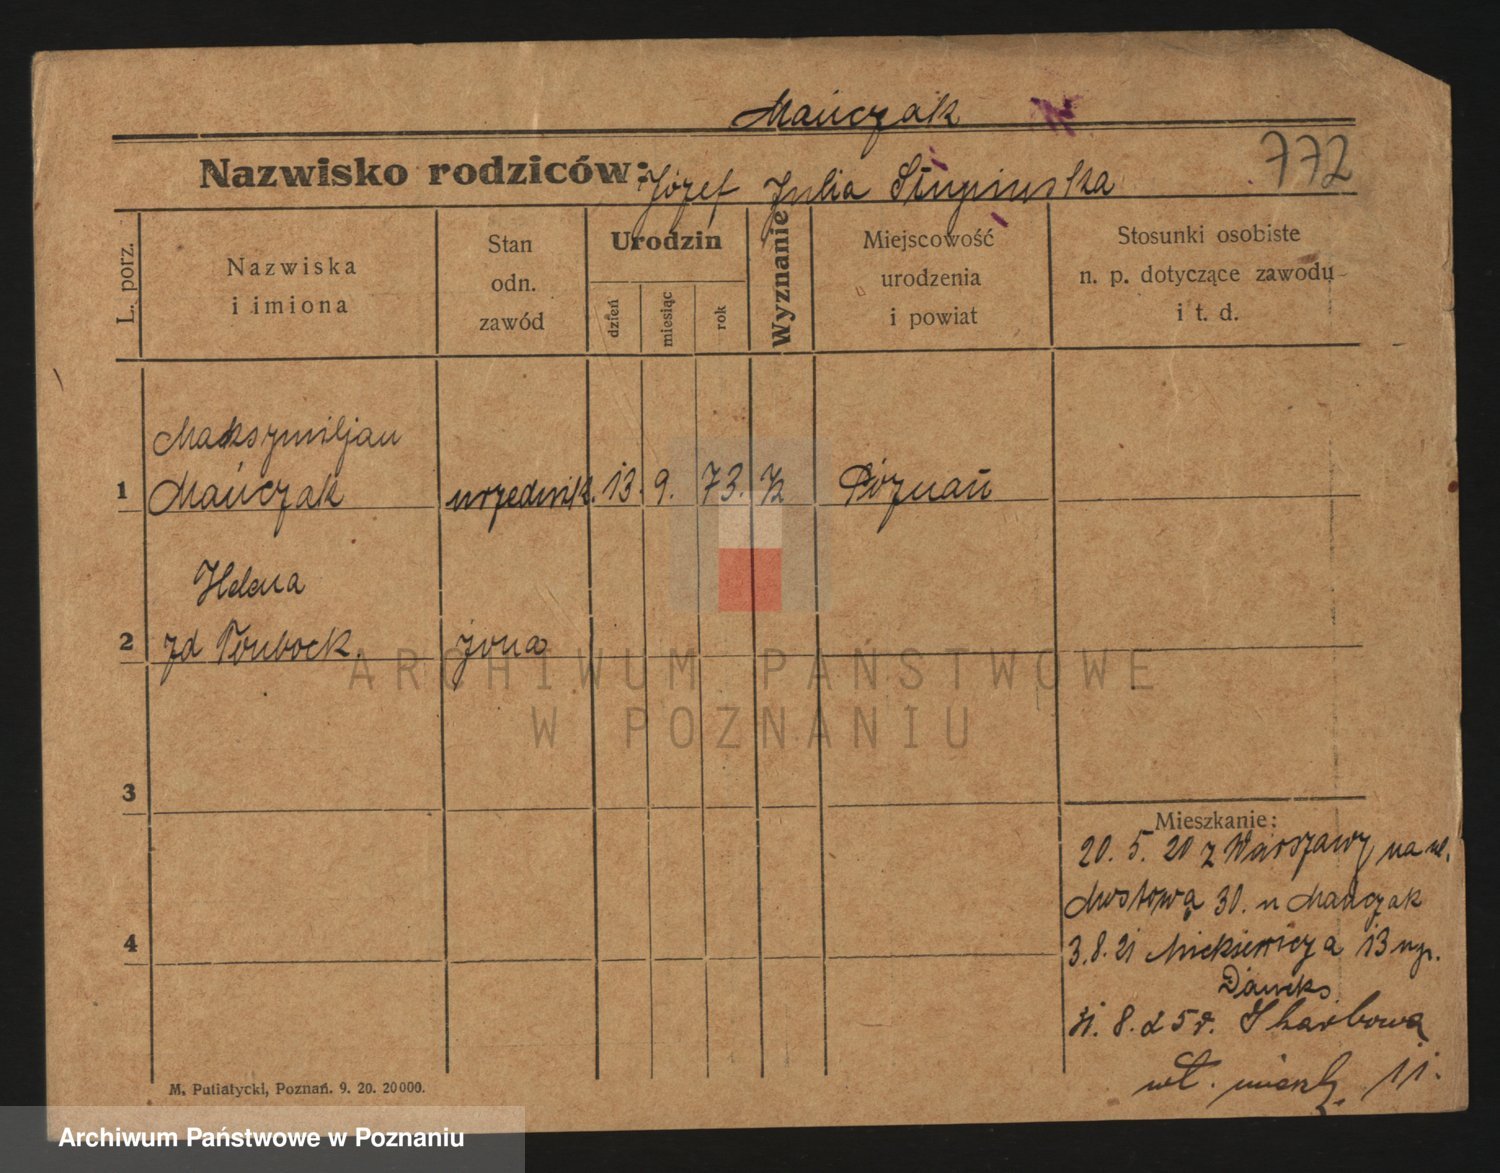 Mańczak
Nazwisko rodziców: Józef Julia Słupińska
772
L. porz.
Nazwiska
i imiona
Stan
odn.
zawód
Urodzin
dzień
miesiąc
rok
Wyznanie
Miejscowość
urodzenia
i powiat
Stosunki osobiste
n. p. dotyczące zawodu
i t. d.
Maksymiljan
1 Mańczak urzędnik. 13. 9. 73. k Poznań
Helena
2 zd żona
ARCHIWUM PAŃSTWOWE
W POZNANIU
3
4
Mieszkanie:
20. 5. 20 z Warszawy na ul.
Mostową 30. u Mańczak
3.8.21 Mickiewicza 13
8. Skarbowa
wł. mieszk. 11.
M. Putiatycki, Poznań. 9. 20. 20000.
Archiwum Państwowe w Poznaniu